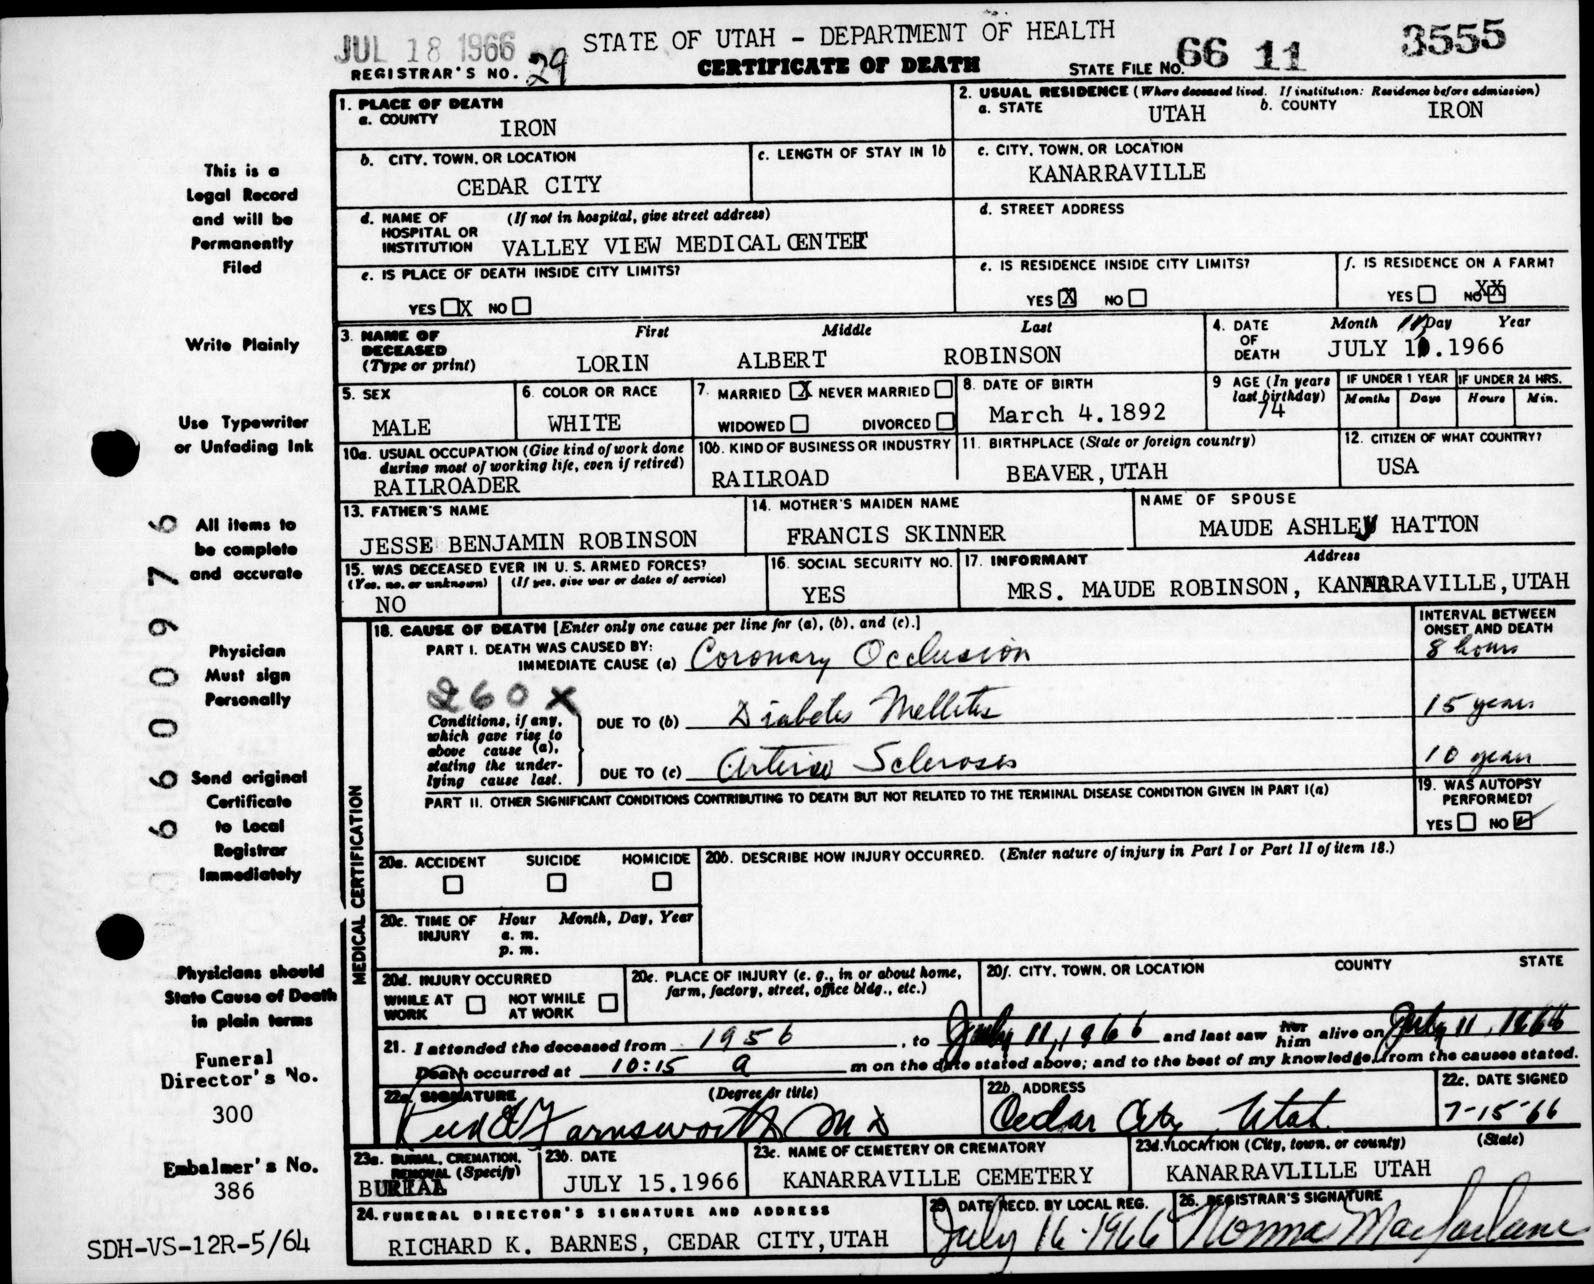 JUL 18 1966
STATE OF UTAH - DEPARTMENT OF HEALTH
66 11 3555
REGISTRAR'S NO. 29
CERTIFICATE OF DEATH
STATE FILE NO.
1. PLACE OF DEATH
a. COUNTY
IRON
2. USUAL RESIDENCE (Where deceased lived. If institution: Residence before admission)
a. STATE UTAH b. COUNTY IRON
b. CITY, TOWN, OR LOCATION
CEDAR CITY
c. LENGTH OF STAY IN 1b
c. CITY, TOWN, OR LOCATION
KANARRAVILLE
d. NAME OF HOSPITAL OR INSTITUTION (If not in hospital, give street address)
VALLEY VIEW MEDICAL CENTER
d. STREET ADDRESS
e. IS PLACE OF DEATH INSIDE CITY LIMITS?
YES X NO
e. IS RESIDENCE INSIDE CITY LIMITS?
YES X NO
f. IS RESIDENCE ON A FARM?
YES NO XX
3. NAME OF DECEASED (Type or print)
First Middle Last
LORIN ALBERT ROBINSON
4. DATE OF DEATH
Month Day Year
11
JULY 1 .1966
5. SEX
MALE
6. COLOR OR RACE
WHITE
7. MARRIED X NEVER MARRIED
WIDOWED DIVORCED
8. DATE OF BIRTH
March 4.1892
9 AGE (In years last birthday)
74
IF UNDER 1 YEAR IF UNDER 24 HRS.
Months Days Hours Min.
10a. USUAL OCCUPATION (Give kind of work done during most of working life, even if retired)
RAILROADER
10b. KIND OF BUSINESS OR INDUSTRY
RAILROAD
11. BIRTHPLACE (State or foreign country)
BEAVER, UTAH
12. CITIZEN OF WHAT COUNTRY?
USA
13. FATHER'S NAME
JESSE BENJAMIN ROBINSON
14. MOTHER'S MAIDEN NAME
FRANCIS SKINNER
NAME OF SPOUSE
MAUDE ASHLEY HATTON
15. WAS DECEASED EVER IN U. S. ARMED FORCES?
(Yes, no, or unknown) (If yes, give war or dates of service)
NO
16. SOCIAL SECURITY NO.
YES
17. INFORMANT Address
MRS. MAUDE ROBINSON, KANARRAVILLE, UTAH
MEDICAL CERTIFICATION
18. CAUSE OF DEATH [Enter only one cause per line for (a), (b), and (c).]
INTERVAL BETWEEN ONSET AND DEATH
PART I. DEATH WAS CAUSED BY:
IMMEDIATE CAUSE (a) Coronary Occlusion 8 hours
260 X
Conditions, if any, which gave rise to above cause (a), stating the underlying cause last.
DUE TO (b) Diabetes Mellitus 15 years
DUE TO (c) Arterio Sclerosis 10 years
PART II. OTHER SIGNIFICANT CONDITIONS CONTRIBUTING TO DEATH BUT NOT RELATED TO THE TERMINAL DISEASE CONDITION GIVEN IN PART I(a)
19. WAS AUTOPSY PERFORMED?
YES NO ✓
20a. ACCIDENT SUICIDE HOMICIDE
20b. DESCRIBE HOW INJURY OCCURRED. (Enter nature of injury in Part I or Part II of item 18.)
20c. TIME OF INJURY Hour Month, Day, Year
a. m.
p. m.
20d. INJURY OCCURRED
WHILE AT WORK NOT WHILE AT WORK
20e. PLACE OF INJURY (e. g., in or about home, farm, factory, street, office bldg., etc.)
20f. CITY, TOWN, OR LOCATION COUNTY STATE
21. I attended the deceased from 1956, to July 11, 1966 and last saw her him alive on July 11, 1966
Death occurred at 10:15 a m on the date stated above; and to the best of my knowledge, from the causes stated.
22a. SIGNATURE (Degree or title)
Farnsworth MD
22b. ADDRESS
Cedar City, Utah
22c. DATE SIGNED
7-15-66
23a. BURIAL, CREMATION, REMOVAL (Specify)
BURIAL
23b. DATE
JULY 15.1966
23c. NAME OF CEMETERY OR CREMATORY
KANARRAVILLE CEMETERY
23d. LOCATION (City, town, or county) (State)
KANARRAVLILLE UTAH
24. FUNERAL DIRECTOR'S SIGNATURE AND ADDRESS
RICHARD K. BARNES, CEDAR CITY, UTAH
25 DATE RECD. BY LOCAL REG.
July 16-1966
26. REGISTRAR'S SIGNATURE
Norma Macfarlane
This is a
Legal Record
and will be
Permanently
Filed
Write Plainly
Use Typewriter
or Unfading Ink
All items to
be complete
and accurate
Physician
Must sign
Personally
Send original
Certificate
to Local
Registrar
Immediately
Physicians should
State Cause of Death
in plain terms
Funeral
Director's No.
300
Embalmer's No.
386
SDH-VS-12R-5/64
6600976